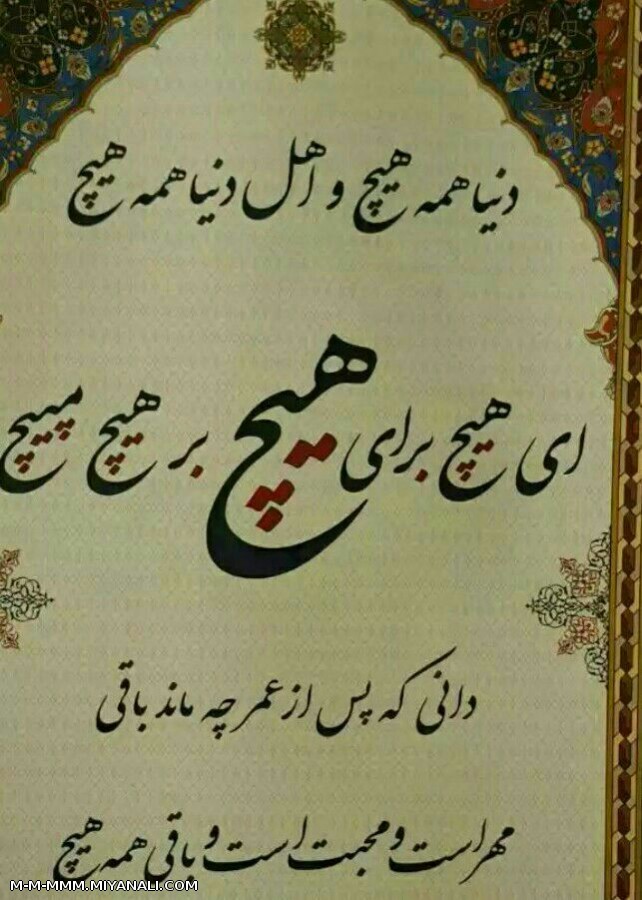 دنیا همه هیچ و اهل دنیا همه هیچ
ای هیچ برای هیچ بر هیچ مپیچ
دانی که پس از عمر چه ماند باقی
مهر است و محبت است و باقی همه هیچ
M-M-MMM.MIYANALI.COM